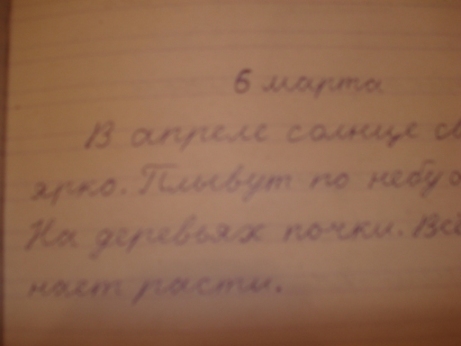 6 марта
В апреле солнце св
ярко. Плывут по небу о
На деревьях почки. Всё
нает расти.